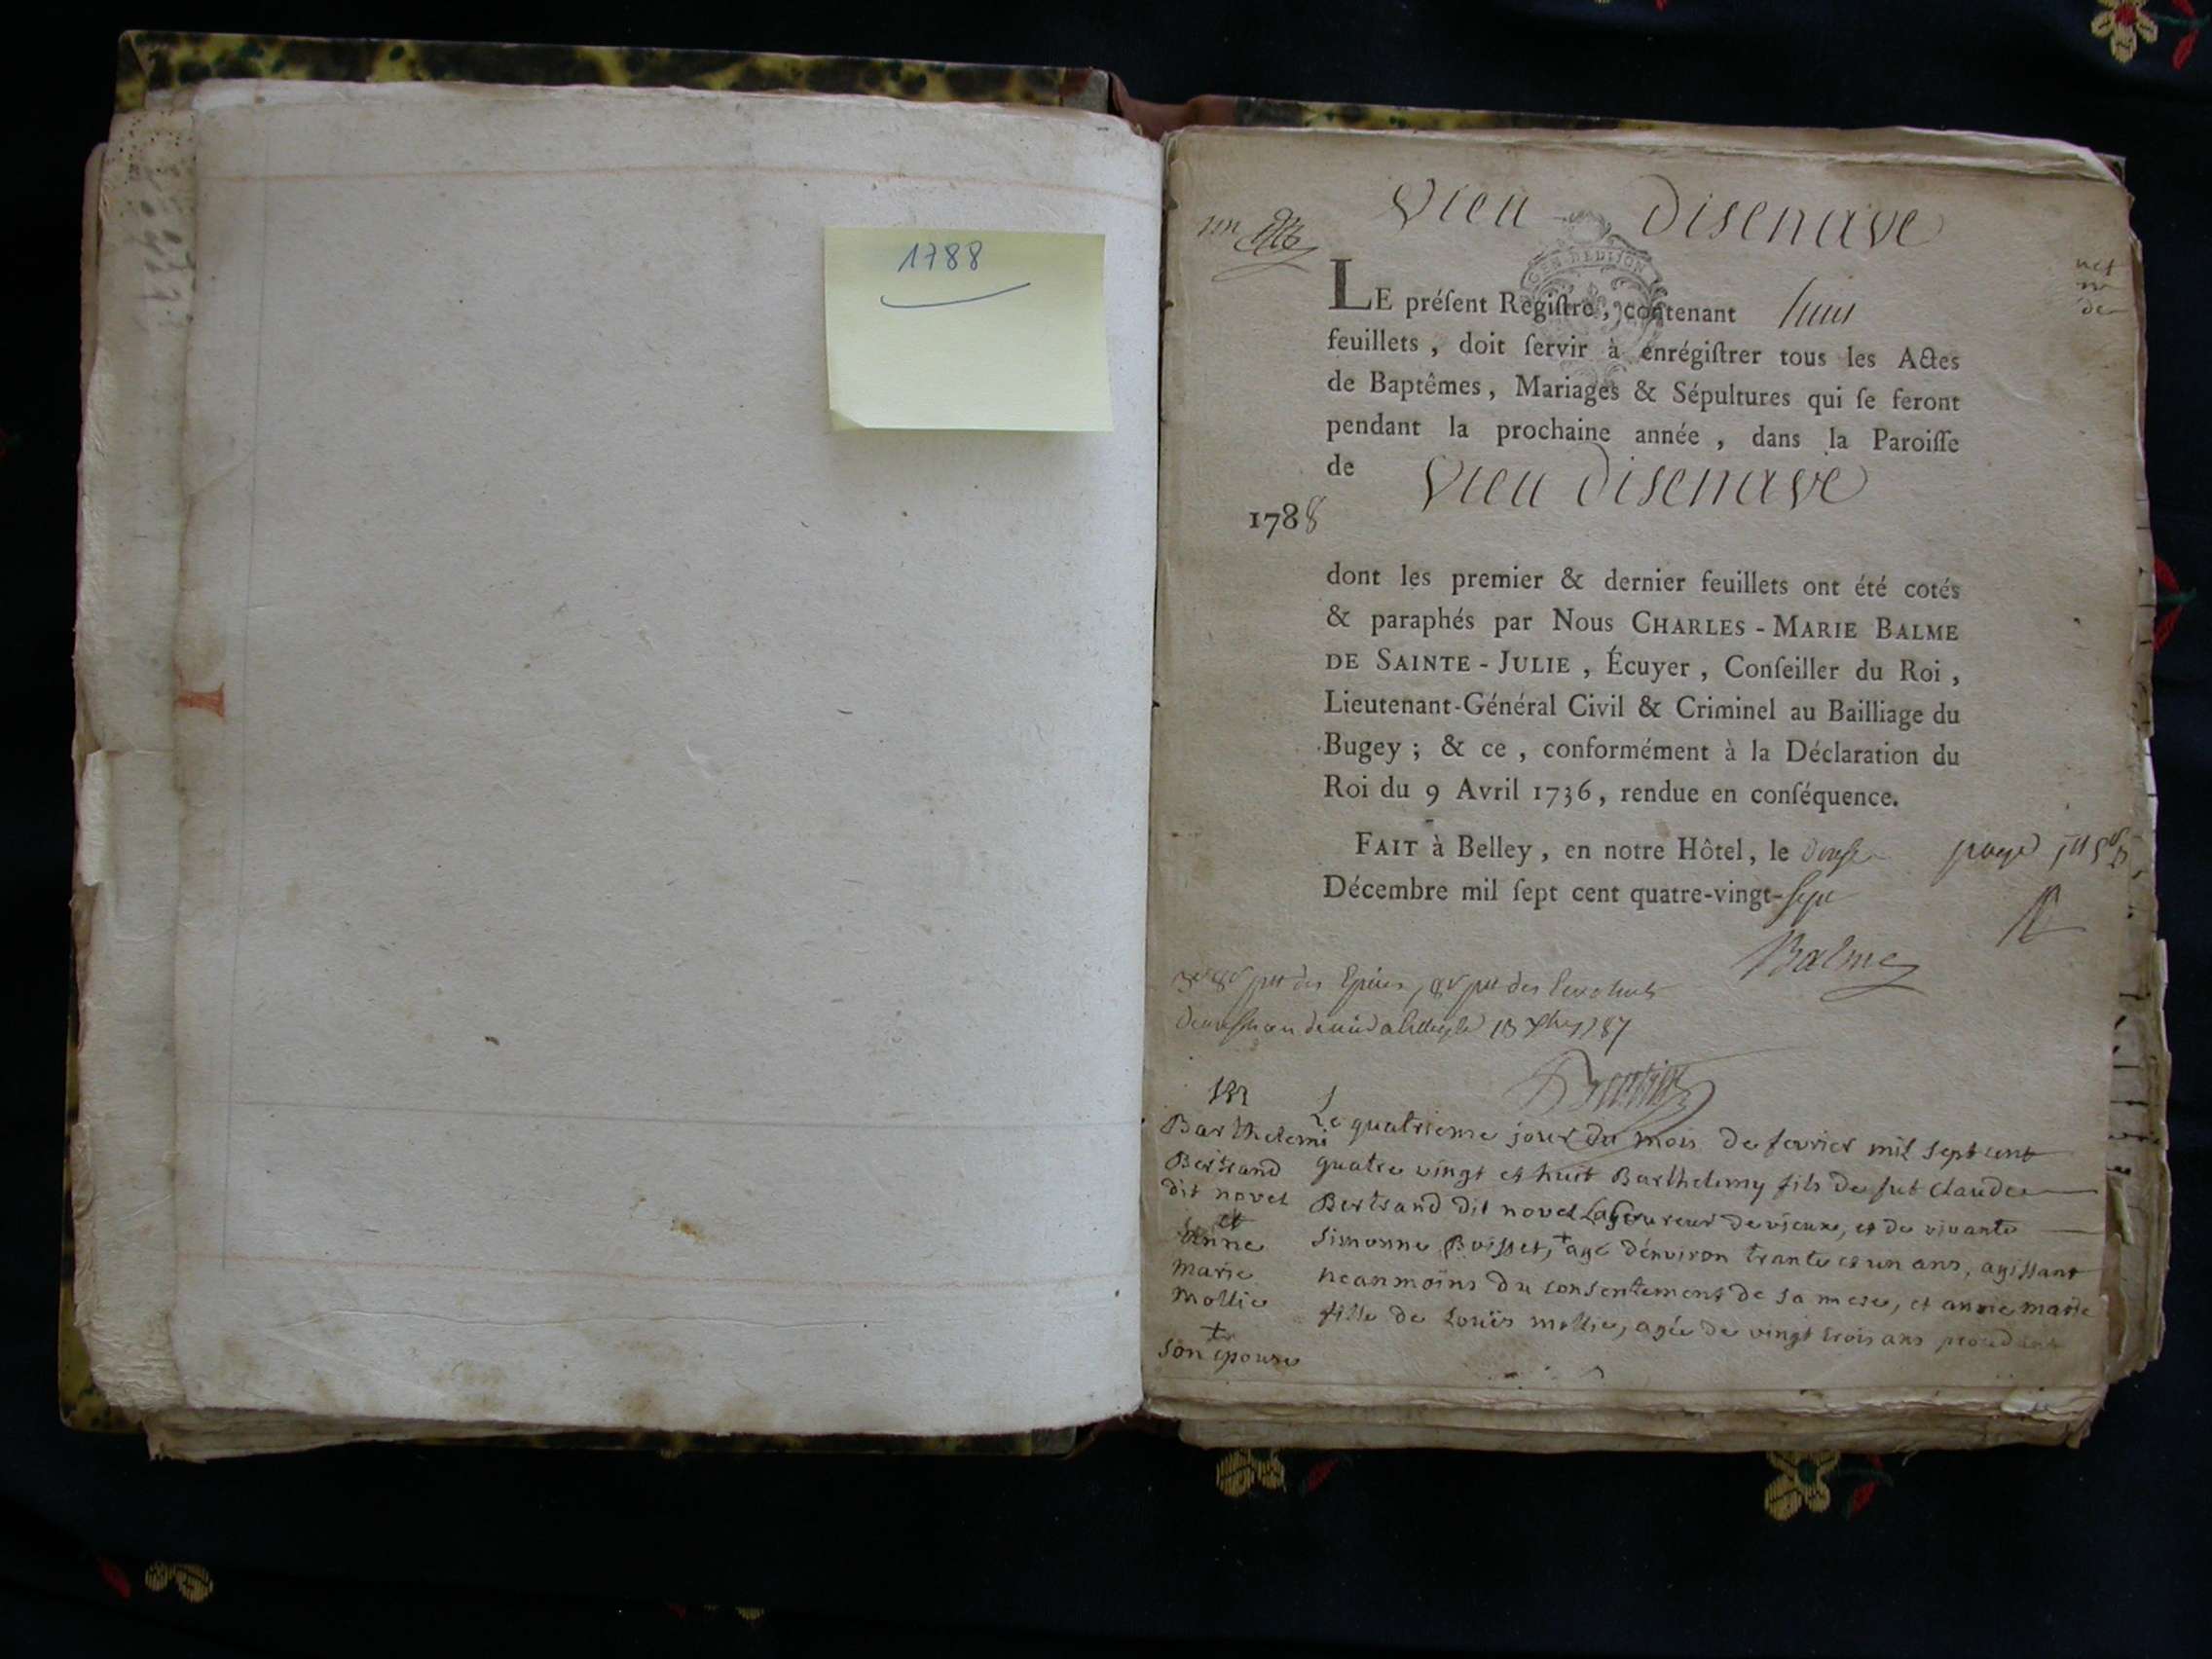 1788
un
vieu disenave
GEN. DE DIJON
LE préſent Regiſtre, contenant huit
feuillets, doit ſervir à enrégiſtrer tous les Actes
de Baptêmes, Mariages & Sépultures qui ſe feront
pendant la prochaine année, dans la Paroiſſe
de vieu disenave
1788
dont les premier & dernier feuillets ont été cotés
& paraphés par Nous CHARLES-MARIE BALME
DE SAINTE-JULIE, Écuyer, Conſeiller du Roi,
Lieutenant-Général Civil & Criminel au Bailliage du
Bugey; & ce, conformément à la Déclaration du
Roi du 9 Avril 1736, rendue en conſéquence.
FAIT à Belley, en notre Hôtel, le douze
Décembre mil ſept cent quatre-vingt-sept
Balme
Barthelemi
Bertrand
dit novel
et
Anne
marie
mollie
son epouse
Le quatrieme jour du mois de fevrier mil sept cent
quatre vingt et huit Barthelemy fils de fut claude
Bertrand dit novel Laboureur de vieux, et de vivante
Simonne Boisset, agé d'environ trante et un ans, agissant
neanmoins du consentement de sa mere, et anne marie
fille de Louis mollie, agée de vingt trois ans